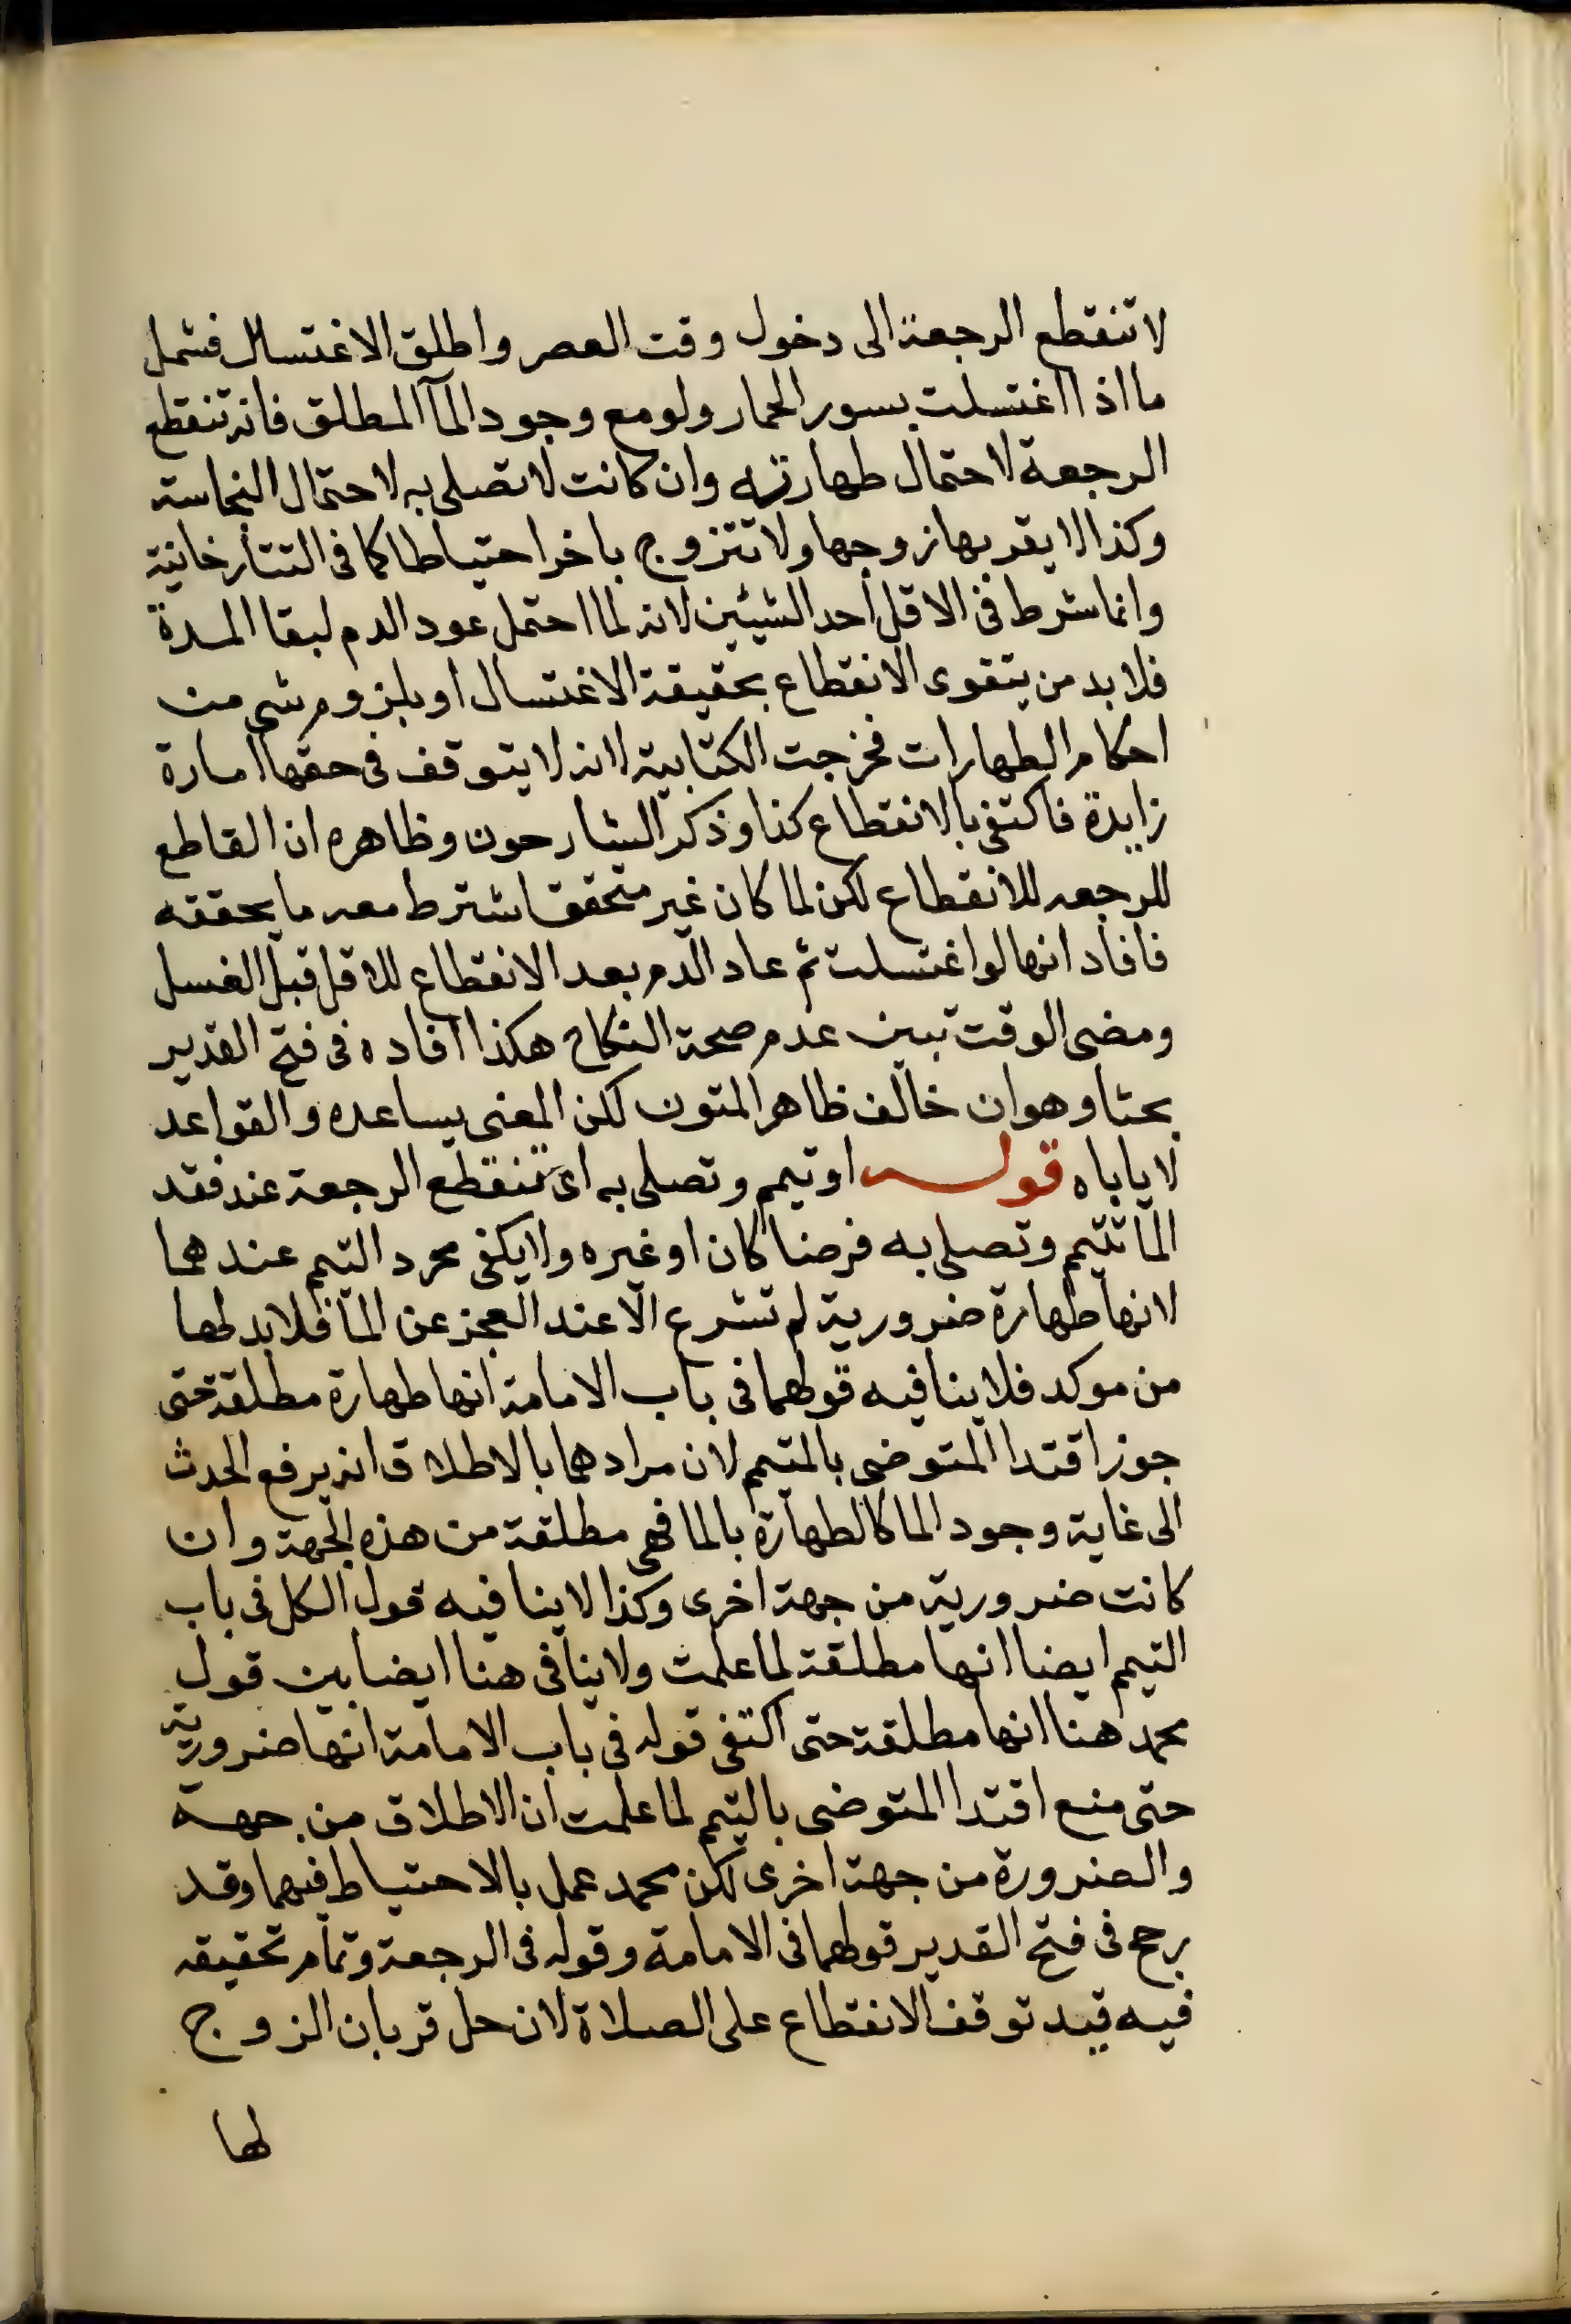 لا تنقطع الرجعة الى دخول وقت العصر واطلق الاغتسال فشمل
ما اذا اغتسلت بسور الحمار ولو مع وجود المآ المطلق فانه تنقطع
الرجعة لاحتمال طهارته وان كانت لا تصلى به لاحتمال النجاسته
وكذا لا يقربها زوجها ولا تتزوج باخر احتياطا كما فى التتارخانية
وانما شرط فى الاقل احد الشيئين لانه لما احتمل عود الدم لبقا المدة
فلا بد من يتقوى الانقطاع بحقيقة الاغتسال او بلزوم شى من
احكام الطهارات فخرجت الكتابية لانه لا يتوقف فى حقها امارة
زايدة فاكتفى بالانقطاع كذا وذكر الشارحون وظاهره ان القاطع
للرجعه للانقطاع لكن لما كان غير متحقق اشترط معه ما يحققه
فافاد انها لو اغتسلت ثم عاد الدم بعد الانقطاع للاقل قبل الغسل
ومضى الوقت تبين عدم صحة النكاح هكذا افاده فى فتح القدير
بحثا وهو ان خالف ظاهر المتون لكن المعنى يساعده والقواعد
لا ياباه قوله او تيمم وتصلى به اى تنقطع الرجعة عند فقد
الما تتيم وتصلى به فرضا كان او غيره ولا يكفى مجرد التيمم عندهما
لانها طهارة ضرورية لم تشرع الا عند العجز عن المآ فلا بد لها
من موكد فلا ينافيه قولهما فى باب الامامة انها طهارة مطلقة حتى
جوز اقتدا المتوضى بالمتيمم لان مرادهما بالاطلاق انه يرفع الحدث
الى غاية وجود الما كالطهارة بالما فهى مطلقة من هذه الجهة وان
كانت ضرورية من جهة اخرى وكذا لا ينافيه قول الكل فى باب
التيمم ايضا انها مطلقة لما علمت ولا ينافى هنا ايضا بين قول
محمد هنا انها مطلقة حتى اكتفى قوله فى باب الامامة انها ضرورية
حتى منع اقتدا المتوضى بالتيمم لما علمت ان الاطلاق من جهة
والضرورة من جهة اخرى لكن محمد عمل بالاحتياط فيهما وقد
رجح فى فتح القدير قولهما فى الامامة وقوله فى الرجعة وتمام تحقيقه
فيه قيد توقف الانقطاع على الصلاة لان حل قربان الزوج
لها